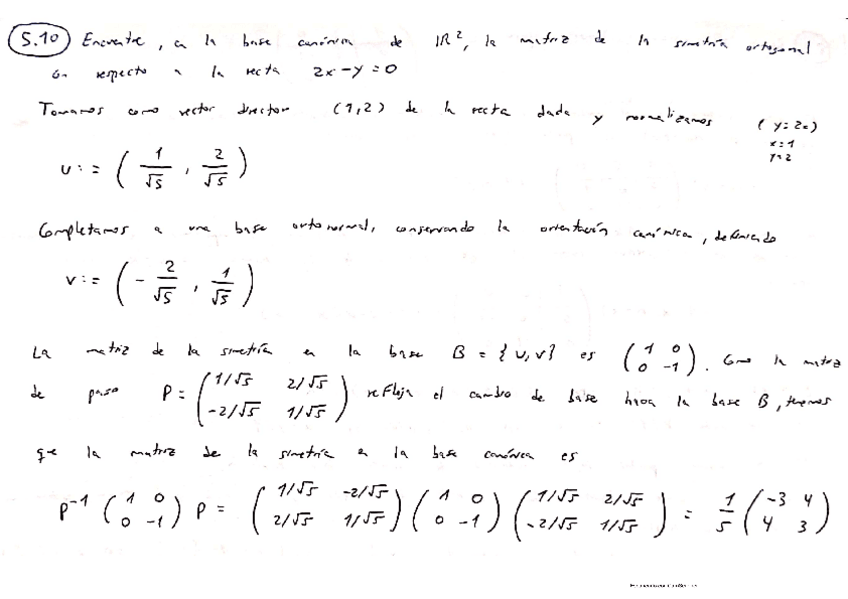 5.10 Encuentre, en la base canónica de IR², la matriz de la simetría ortogonal
con respecto a la recta 2x-y=0
Tomamos como vector director (1,2) de la recta dada y normalizamos (y=2x)
x=1
y=2
u:=(1/√5, 2/√5)
Completamos a una base ortonormal, conservando la orientación canónica, definiendo
v:=(-2/√5, 1/√5)
La matriz de la simetría en la base B={u,v} es (1 0 0 -1). Como la matriz
de paso P=(1/√5 2/√5 -2/√5 1/√5) refleja el cambio de base hacia la base B, tenemos
que la matriz de la simetría en la base canónica es
P⁻¹ (1 0 0 -1) P = (1/√5 -2/√5 2/√5 1/√5)(1 0 0 -1)(1/√5 2/√5 -2/√5 1/√5) = 1/5 (-3 4 4 3)